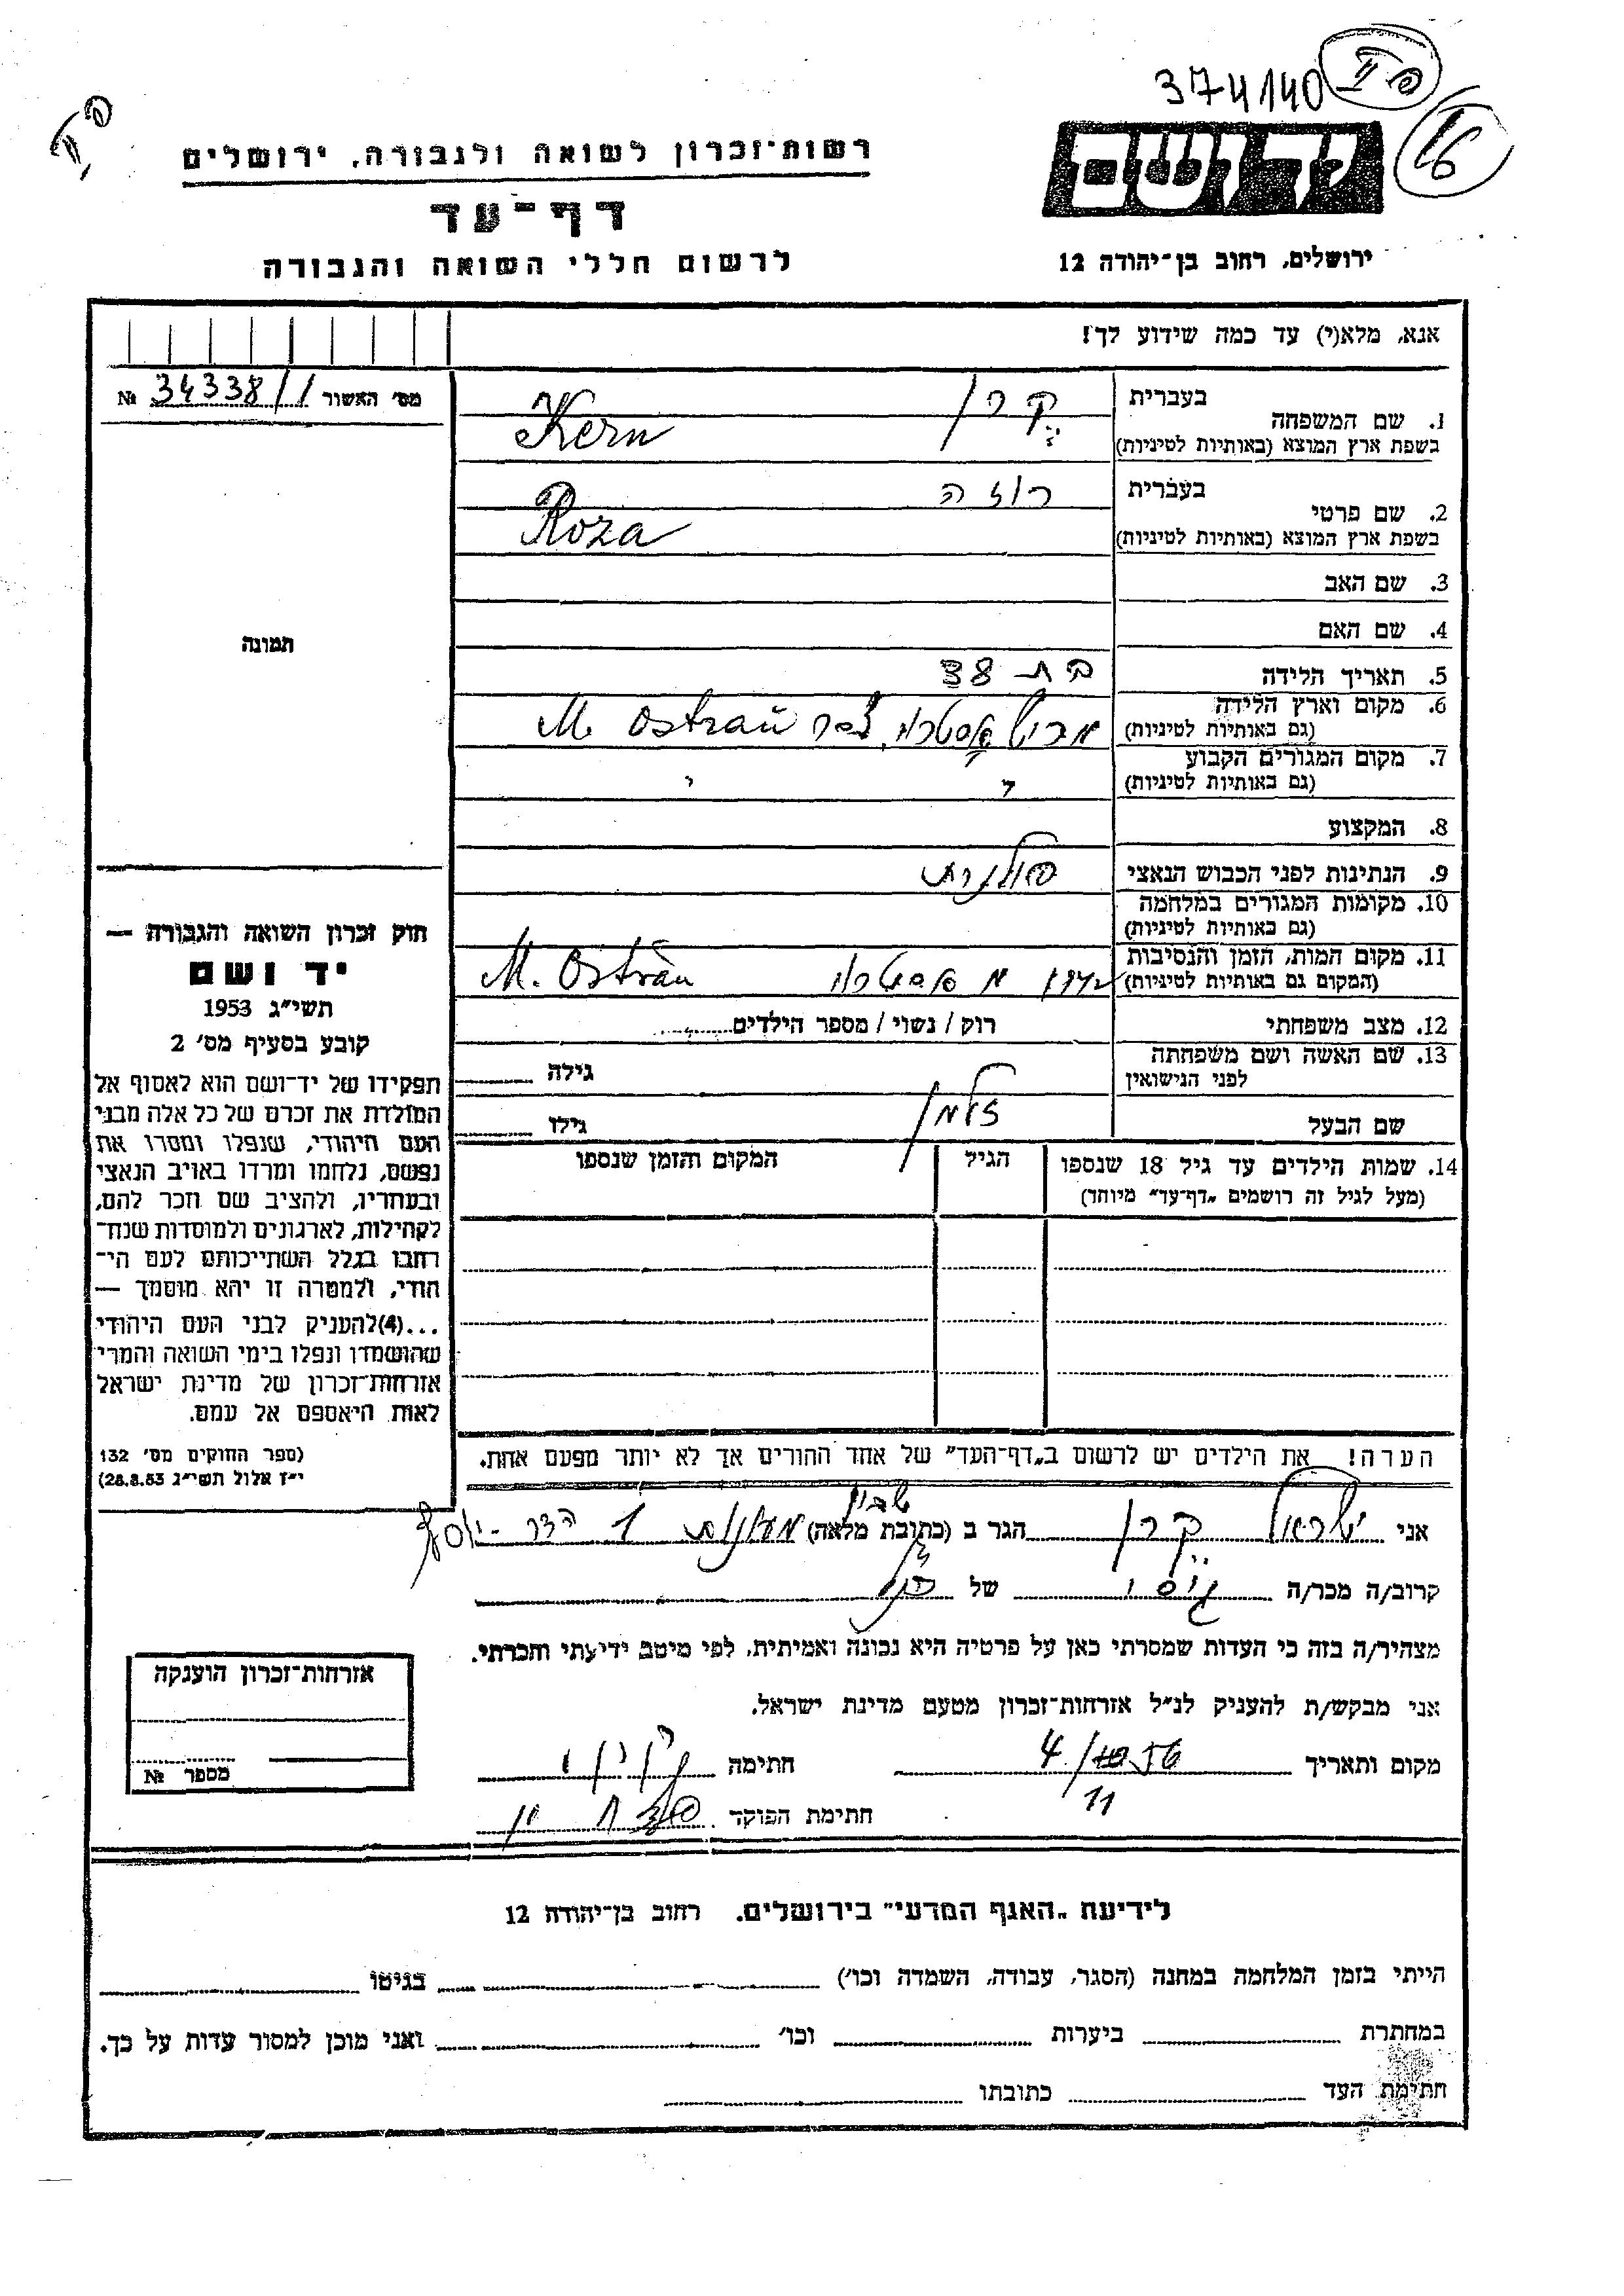 374140
16
רשות־זכרון לשואה ולגבורה, ירושלים
ידושם
דף־עד
ירושלים, רחוב בן־יהודה 12
לרשום חללי השואה והגבורה
אנא, מלא(י) עד כמה שידוע לך!
מס׳ האשור 34338/1 №
תמונה
חוק זכרון השואה והגבורה —
יד ושם
תשי״ג 1953
קובע בסעיף מס׳ 2
תפקידו של יד־ושם הוא לאסוף אל
המולדת את זכרם של כל אלה מבני
העם היהודי, שנפלו ומסרו את
נפשם, נלחמו ומרדו באויב הנאצי
ובעוזריו, ולהציב שם וזכר להם,
לקהילות, לארגונים ולמוסדות שנח־
רבו בגלל השתייכותם לעם הי־
הודי, ולמטרה זו יהא מוסמך —
...(4)להעניק לבני העם היהודי
שהושמדו ונפלו בימי השואה והמרי
אזרחות־זכרון של מדינת ישראל
לאות היאספם אל עמם.
(ספר החוקים מס׳ 132
י״ז אלול תשי״ג 28.8.53)
בעברית קרן
1. שם המשפחה
בשפת ארץ המוצא (באותיות לטיניות) Kern
בעברית רוזה
2. שם פרטי
בשפת ארץ המוצא (באותיות לטיניות) Roza
3. שם האב
4. שם האם
5. תאריך הלידה בת 38
6. מקום וארץ הלידה
(גם באותיות לטיניות) M. Ostrau
7. מקום המגורים הקבוע
(גם באותיות לטיניות)
8. המקצוע
9. הנתינות לפני הכבוש הנאצי פולנית
10. מקומות המגורים במלחמה
(גם באותיות לטיניות)
11. מקום המות, הזמן והנסיבות
(המקום גם באותיות לטיניות) M. Ostrau
12. מצב משפחתי רוק / נשוי / מספר הילדים
13. שם האשה ושם משפחתה גילה
לפני הנישואין
שם הבעל זלמן גילו
14. שמות הילדים עד גיל 18 שנספו הגיל המקום והזמן שנספו
(מעל לגיל זה רושמים „דף־עד״ מיוחד)
הערה! את הילדים יש לרשום ב„דף־העד״ של אחד ההורים אך לא יותר מפעם אחת.
אני ישראל קרן הגר ב (כתובת מלאה)
קרוב/ה מכר/ה גיסו של
מצהיר/ה בזה כי העדות שמסרתי כאן על פרטיה היא נכונה ואמיתית, לפי מיטב ידיעתי והכרתי.
אני מבקש/ת להעניק לנ״ל אזרחות־זכרון מטעם מדינת ישראל.
מקום ותאריך 4/11 חתימה
חתימת הפוקד
אזרחות־זכרון הוענקה
מספר №
לידיעת „האגף המדעי״ בירושלים. רחוב בן־יהודה 12
הייתי בזמן המלחמה במחנה (הסגר, עבודה, השמדה וכו׳) בגיטו
במחתרת ביערות וכו׳ ואני מוכן למסור עדות על כך.
חתימת העד כתובתו